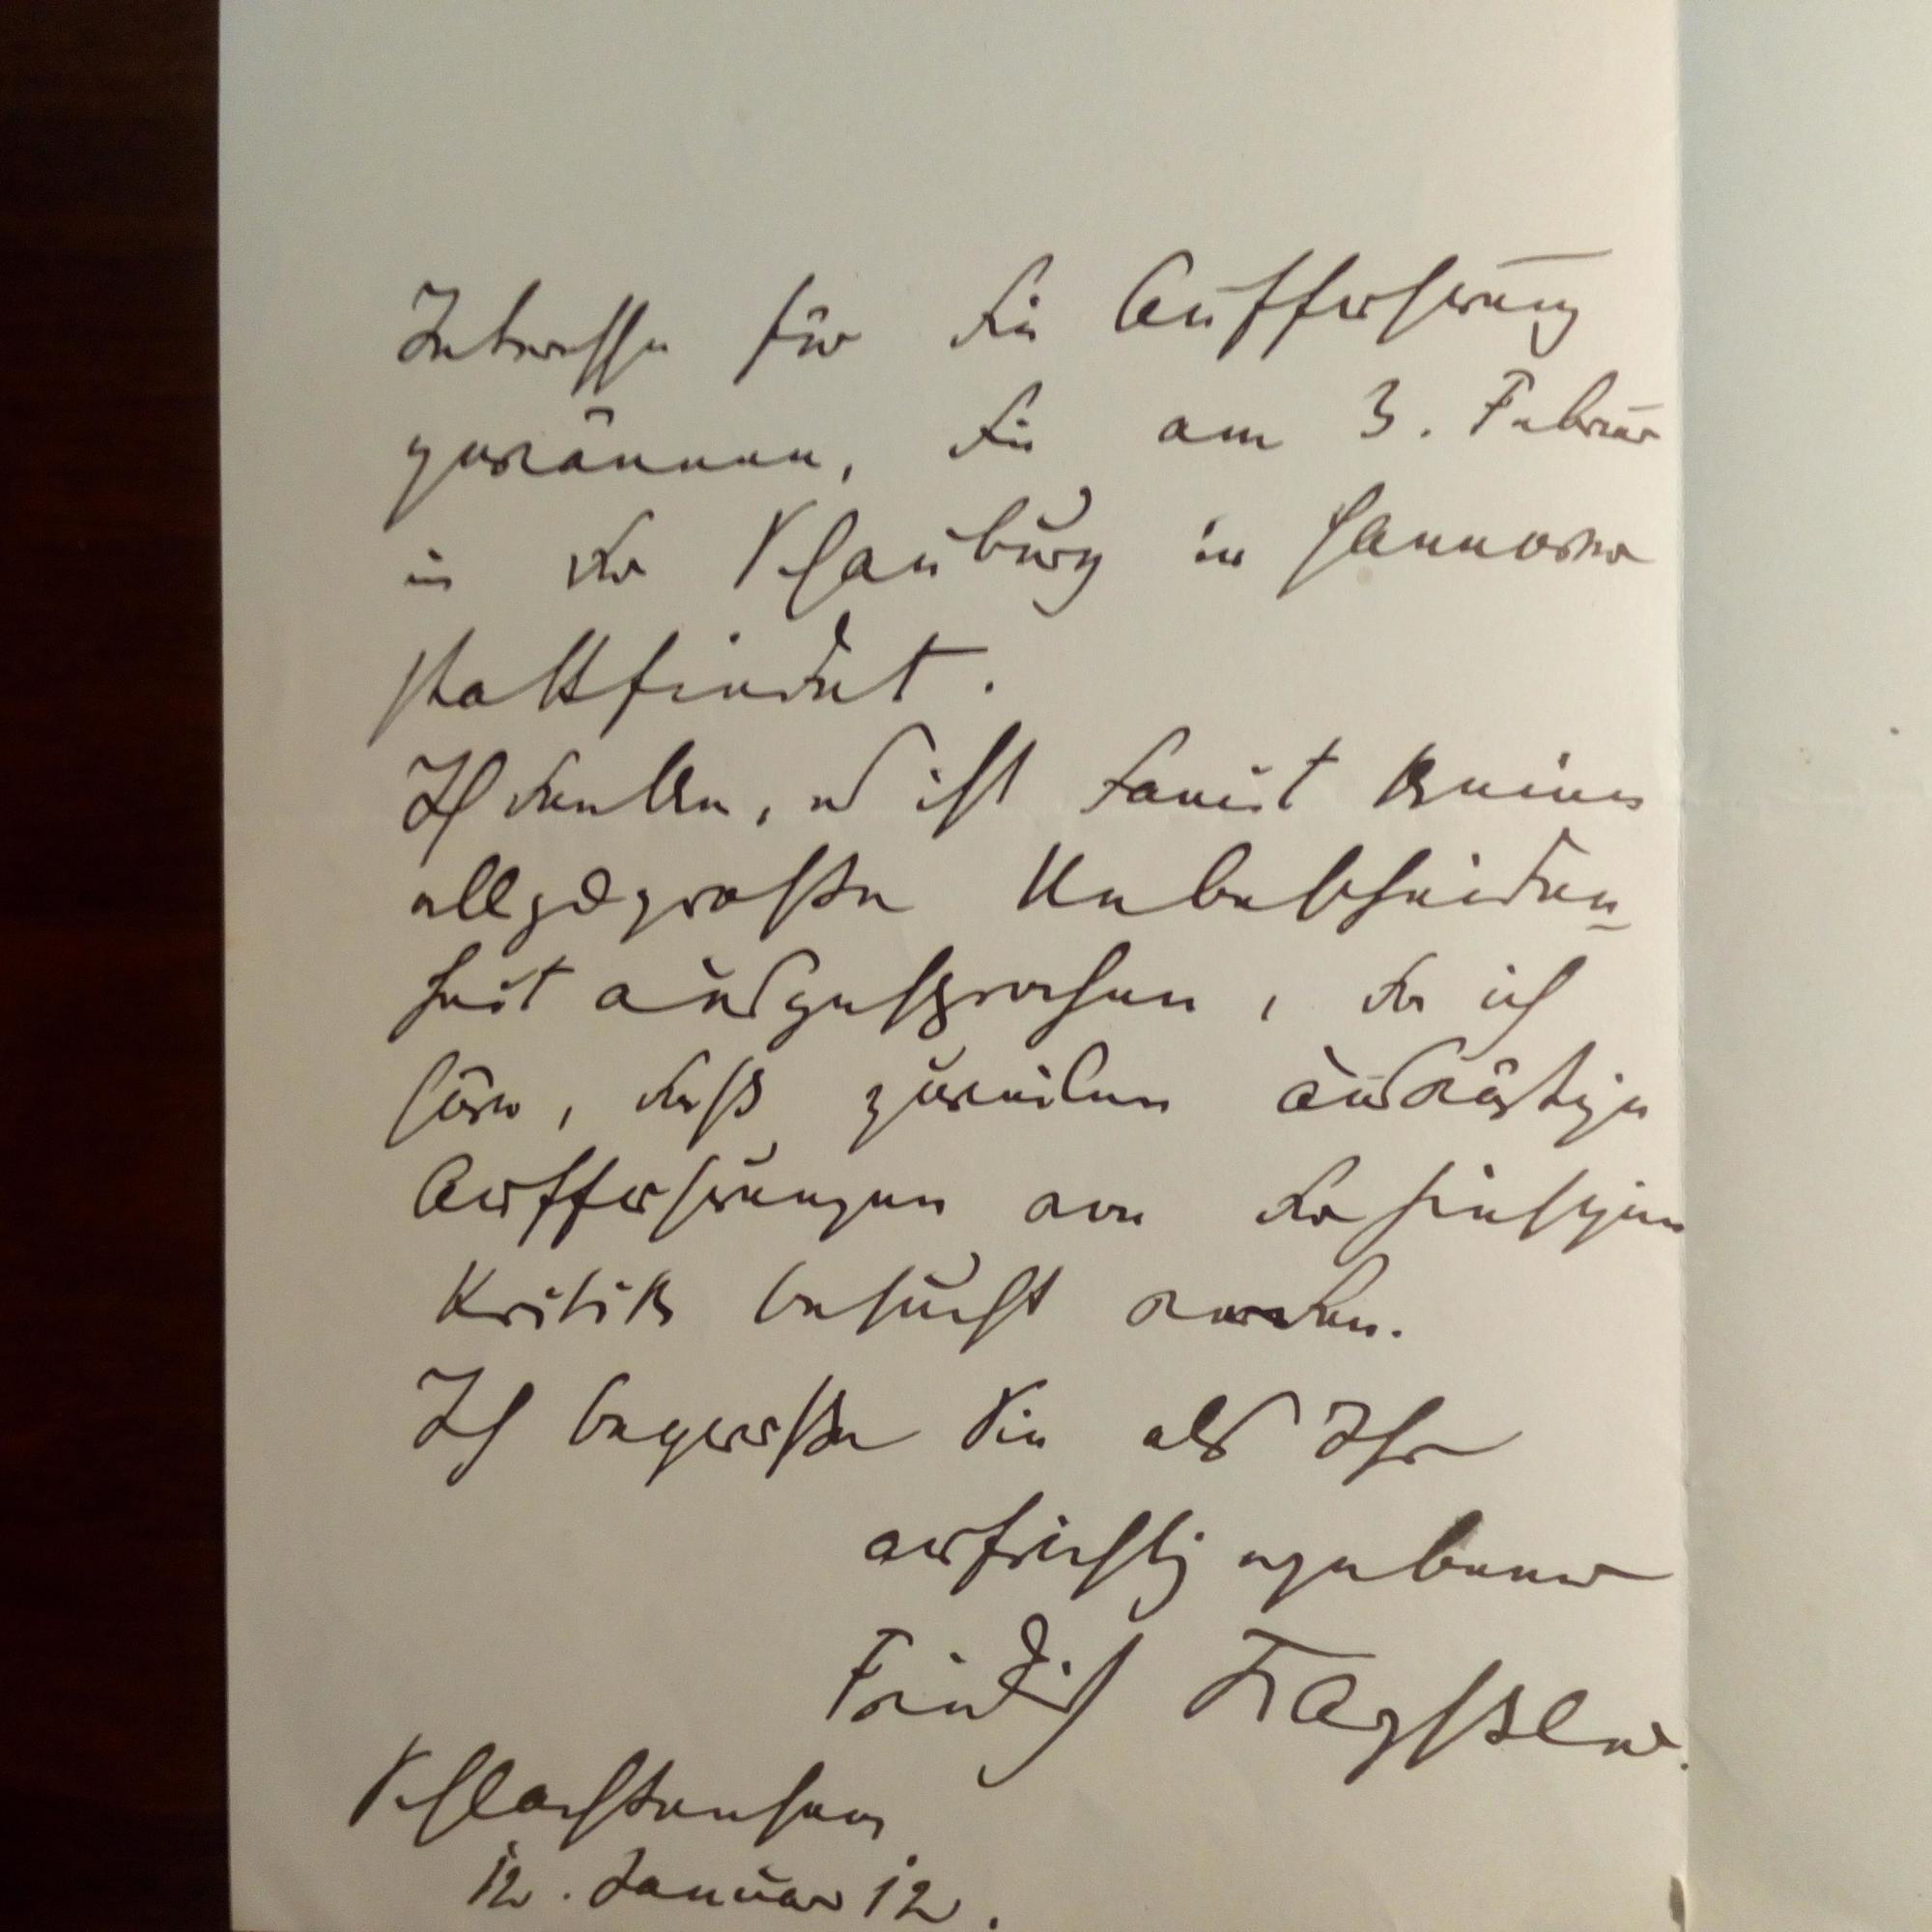 Interesse für die Aufführung
gewännen, die am 3. Februar
in der Schauburg in Hannover
stattfindet.
Ich denke, es ist damit keine
allzugroße Unbescheiden-
heit ausgesprochen, da ich
höre, daß zuweilen auswärtige
Aufführungen von der hiesigen
Kritik besucht werden.
Ich begrüße Sie als Ihr
aufrichtig ergebener
Friedrich
Schlachtensee
12. Januar 12.